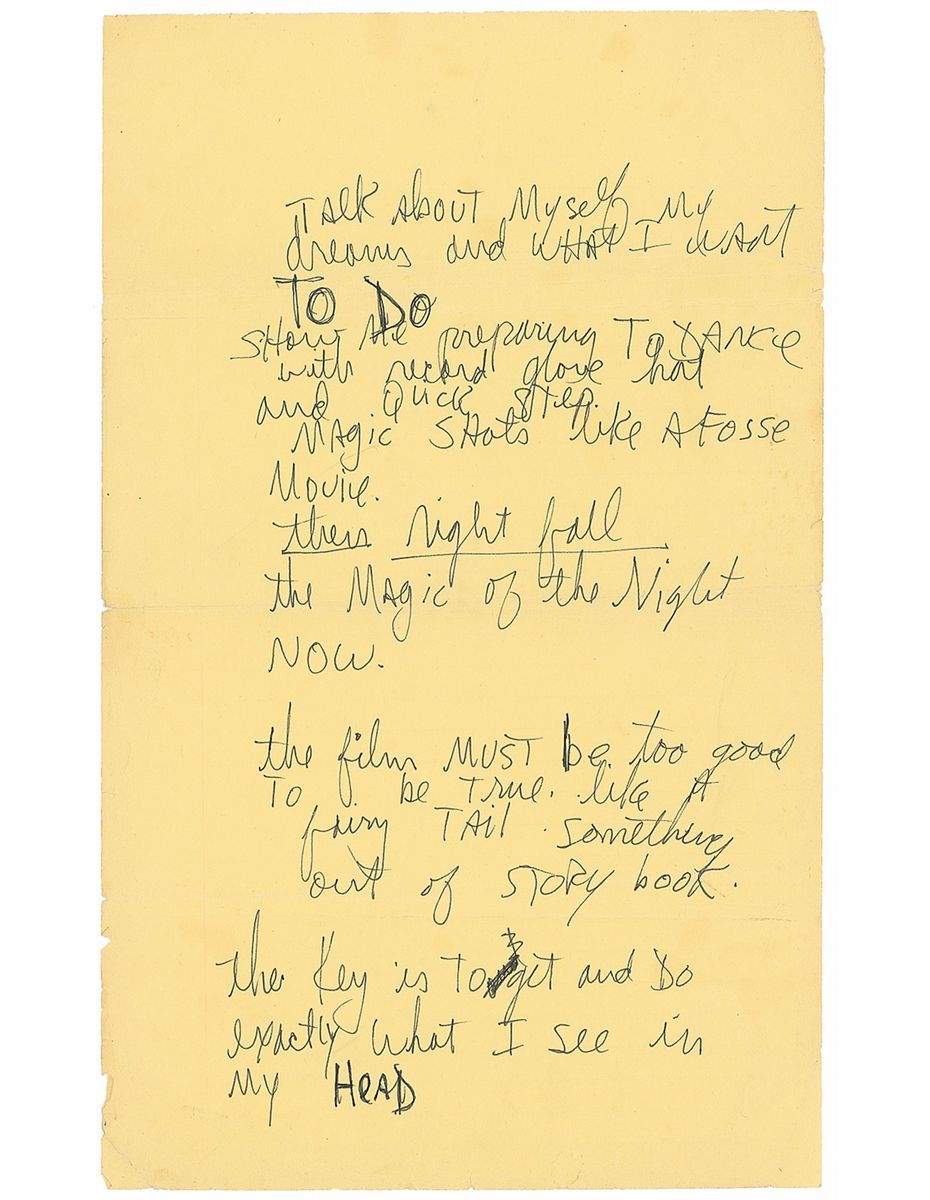 TALK about Myself My
dreams and WHAT I WANT
TO DO
SHOW Me preparing To DANCE
with record glove hat
and Quick Step.
MAgic SHots like A FOSSE
Movie.
then Night fall
the MAgic of the Night
NOW.
the film MUST be too good
To be True. like A
fairy TAil. Something
out of STORY book.
the Key is To git and Do
exactly what I see in
My HeAD